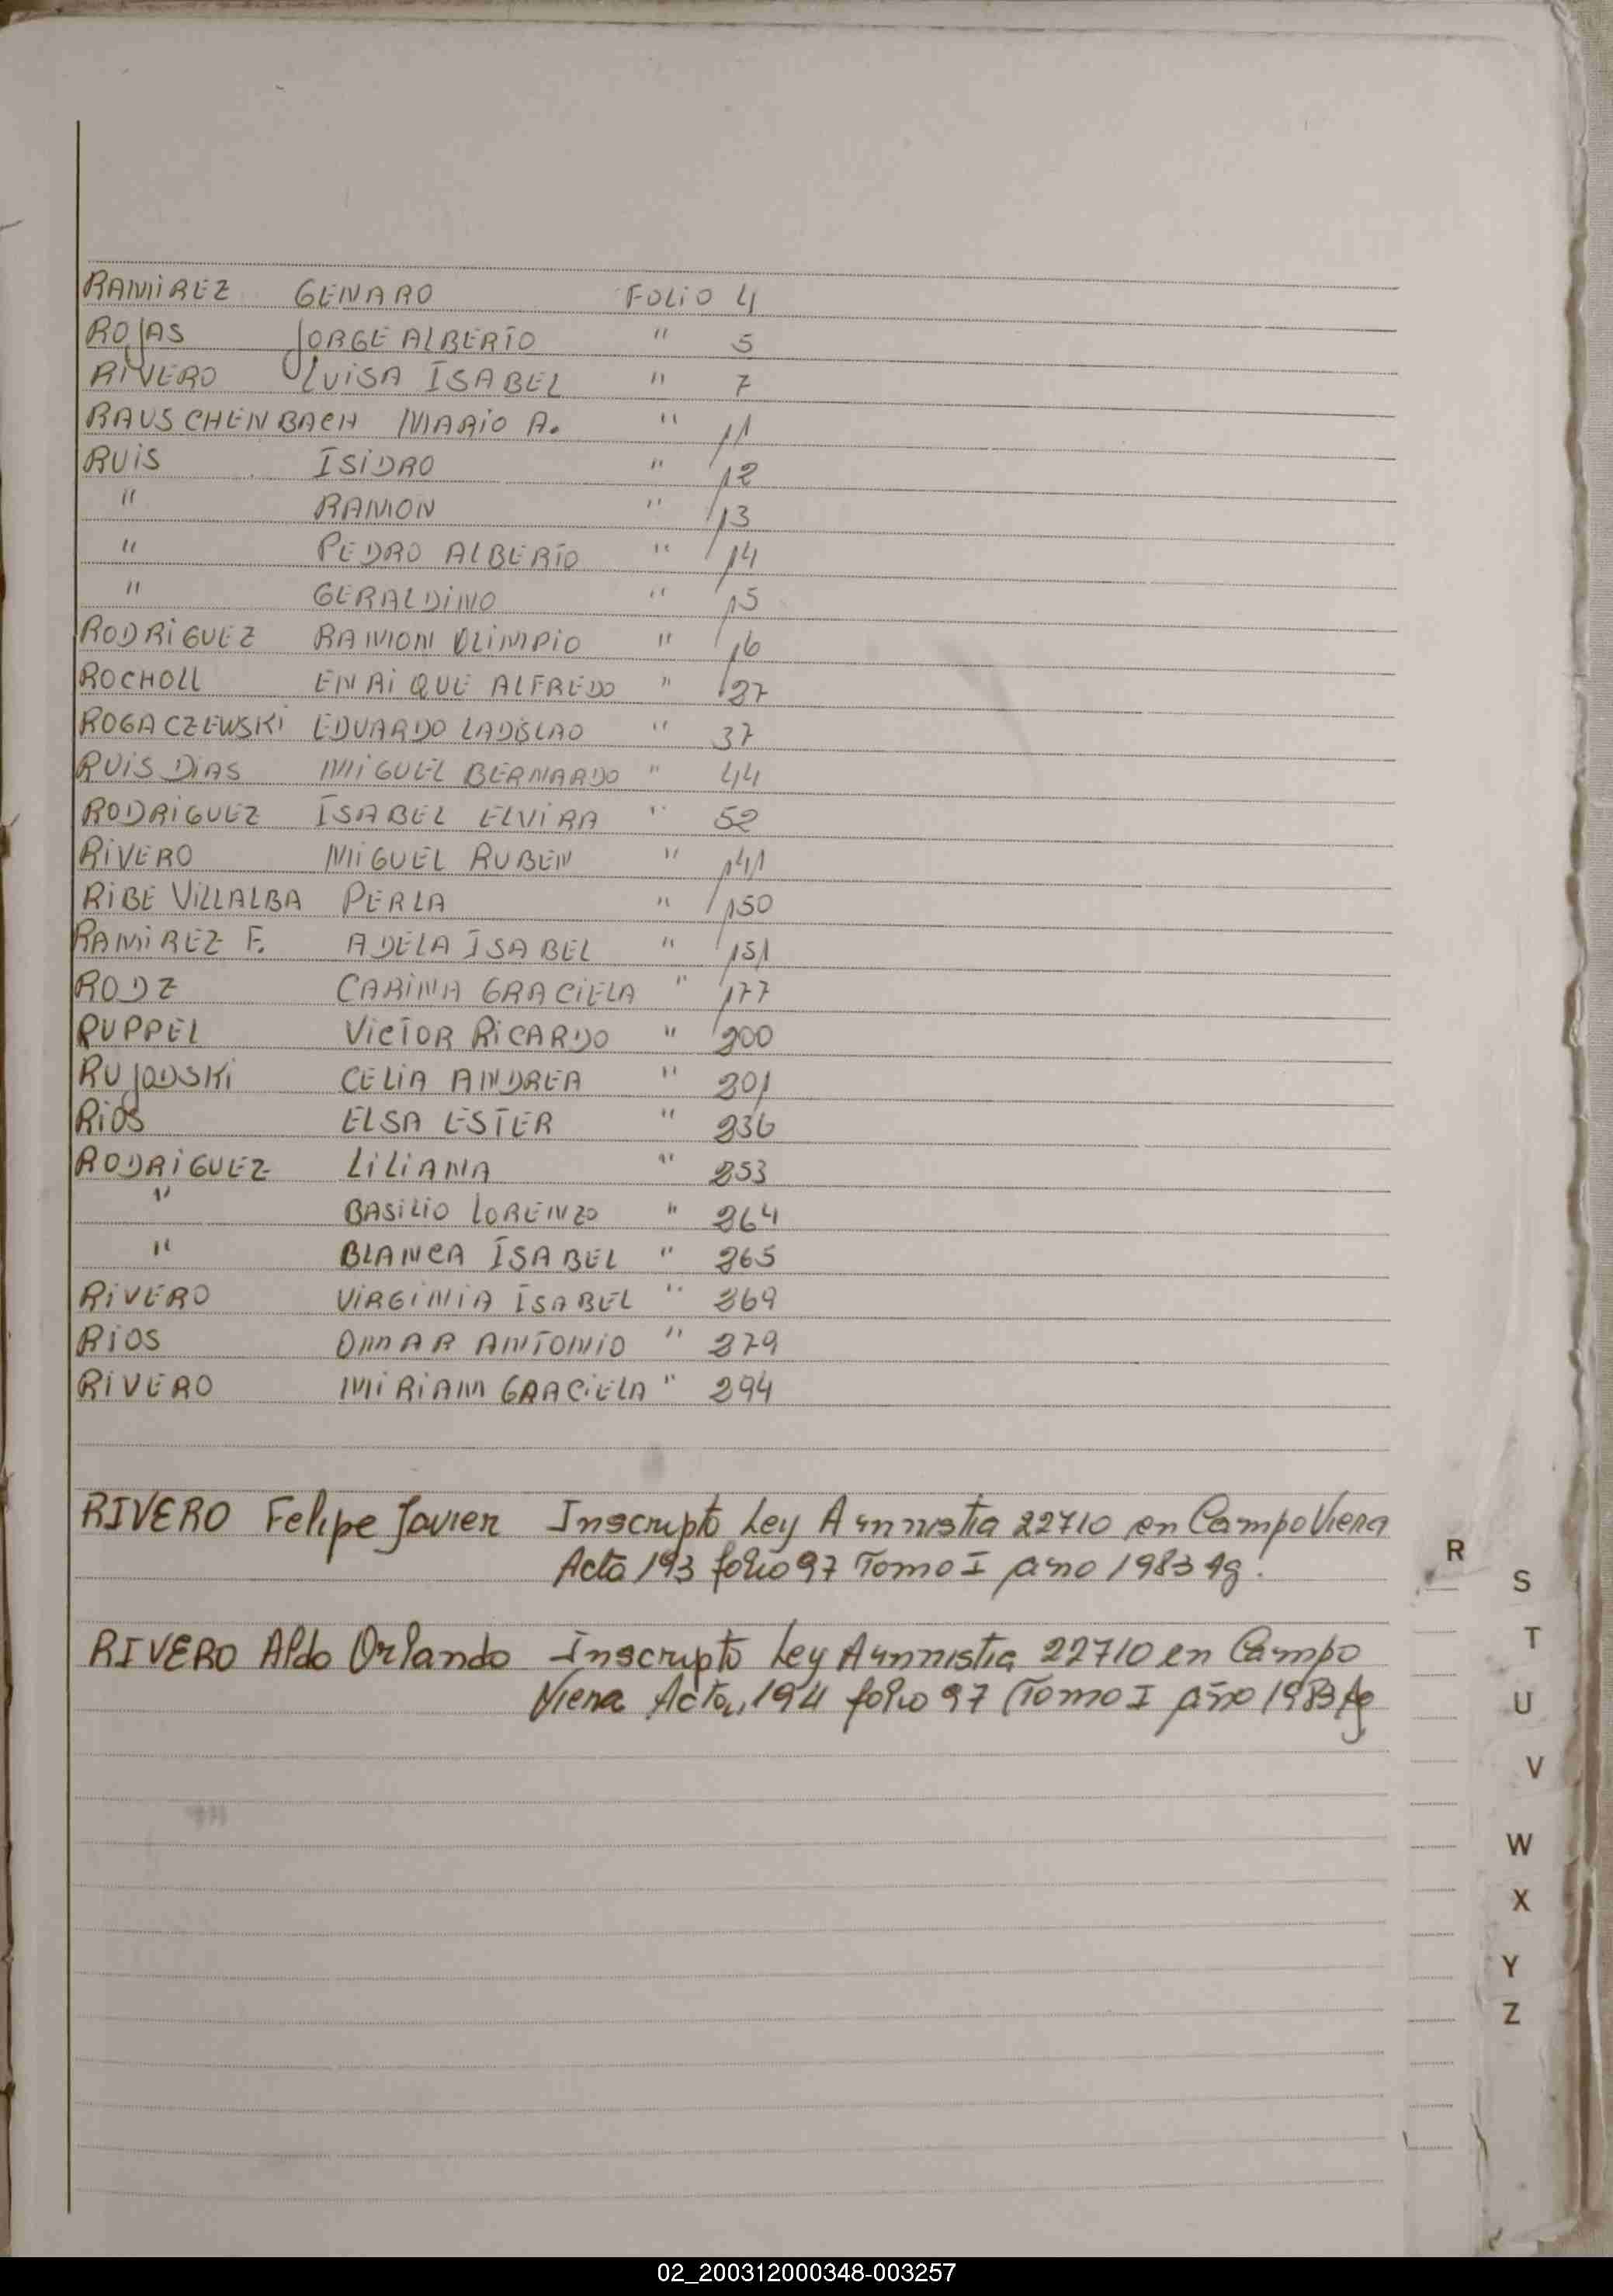 RAMIREZ GENARO FOLIO 4
ROJAS JORGE ALBERTO " 5
RIVERO LUISA ISABEL " 7
RAUSCHENBACH MARIO A. " 11
RUIS ISIDRO " 12
" RAMON " 13
" PEDRO ALBERTO " 14
" GERALDINO " 15
RODRIGUEZ RAMON OLIMPIO " 16
ROCHOLL ENRIQUE ALFREDO " 27
ROGACZEWSKI EDUARDO LADISLAO " 37
RUIS DIAS MIGUEL BERNARDO " 44
RODRIGUEZ ISABEL ELVIRA " 52
RIVERO MIGUEL RUBEN " 141
RIBE VILLALBA PERLA " 150
RAMIREZ F. ADELA ISABEL " 151
RODZ CARINA GRACIELA " 177
RUPPEL VICTOR RICARDO " 200
RUJODSKI CELIA ANDREA " 201
RIOS ELSA ESTER " 236
RODRIGUEZ LILIANA " 253
" BASILIO LORENZO " 264
" BLANCA ISABEL " 265
RIVERO VIRGINIA ISABEL " 269
RIOS OMAR ANTONIO " 279
RIVERO MIRIAM GRACIELA " 294
RIVERO Felipe Javier Inscripto Ley Amnistia 22710 en Campo Viera
Acta 193 folio 97 Tomo I año 1983 Ag!
RIVERO Aldo Orlando Inscripto Ley Amnistia 22710 en Campo
Viera Acta 194 folio 97 Tomo I año 1983 Ag
R
S
T
U
V
W
X
Y
Z
02_200312000348-003257